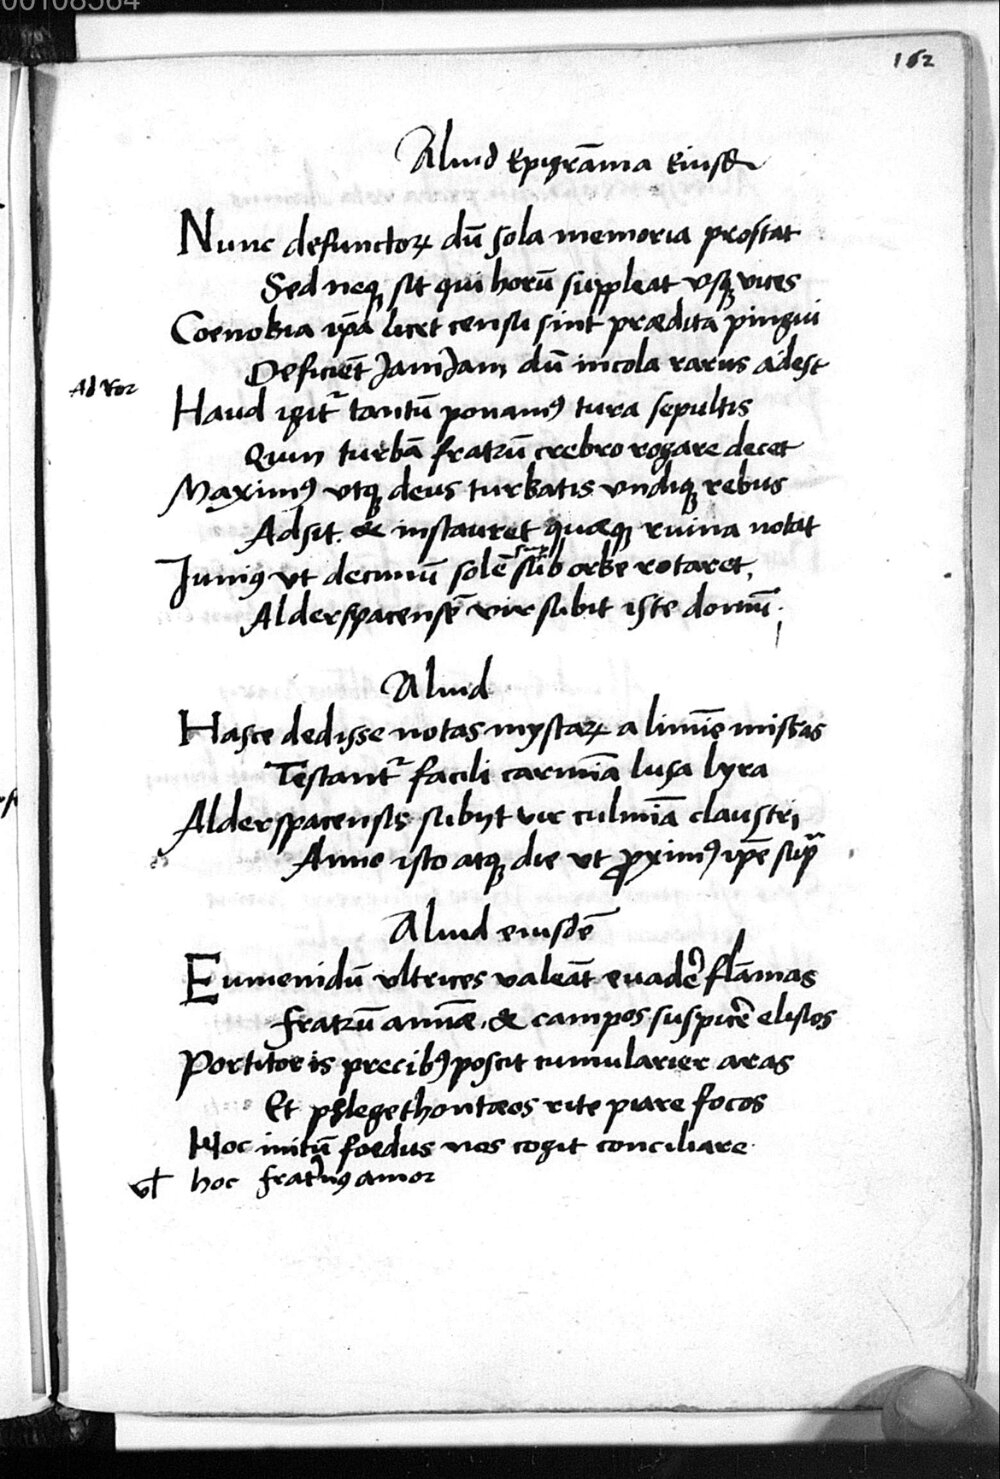 00108564
162
Aliud Epigrāma Eiusdē
Nunc defunctoꝝ dū sola memoria prostat
Sed neqꝫ sit qui horū suppleat usqꝫ vices
Coenobia ip̄a licet censu sint prædita pingui
Deficiēt JamJam dū incola rarus adest
Ad Ror
Haud igit᷑ tantū ponamꝰ tura sepultis
Quin turbā fratrū crebro rogare decet
Maximꝰ utqꝫ deus turbatis undiqꝫ rebus
Adsit. & instauret quæqꝫ ruina notat
Juniꝰ ut decimū solē sub orbe rotaret,
Alderspacensē vir subit iste domū.
Aliud
Hasce dedisse notas mystaꝝ a limīe missas
Testant᷑ facili carmīa lusa lyra
Alderspacensis subijt vir culmīa claustri
Anno isto atqꝫ die ut ꝓximꝰ ip̄e sup̄
Aliud eiusdē
Eumenidū ultrices valeāt euader̄ flāmas
Fratrū animæ, & campos suspicer̄ elisios
Portitoris precibꝰ poscit tumularier aras
Et phlegethontæos rite piare focos
Hoc initū foedus nos cogit conciliare
vl hoc frat̄nꝰ amor